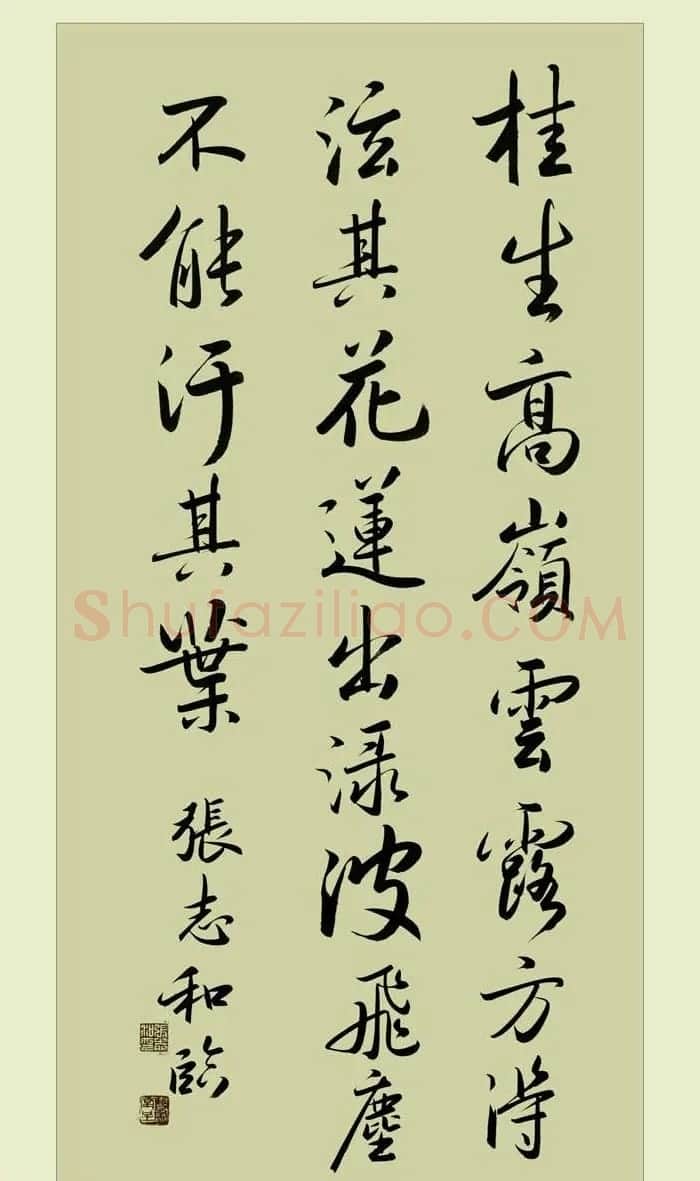 桂生高嶺雲露方得
泫其花蓮出淥波飛塵
不能汙其葉
張志和臨
Shufaziliao.COM